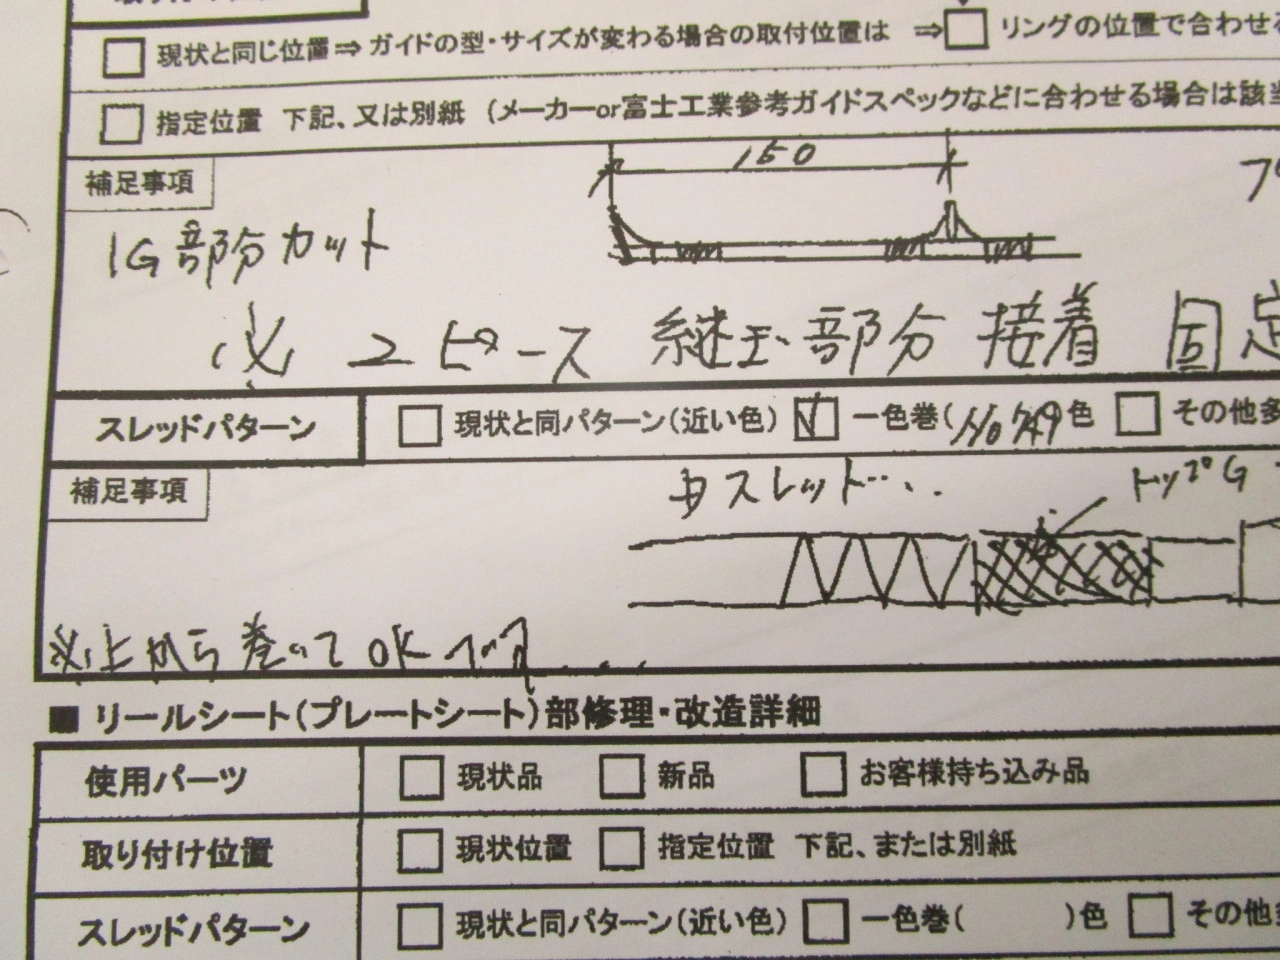 □ 現状と同じ位置⇒ ガイドの型・サイズが変わる場合の取付位置は ⇒□ リングの位置で合わせ
□ 指定位置 下記、又は別紙 (メーカーor富士工業参考ガイドスペックなどに合わせる場合は該
補足事項
150
1G部分カット
※ 2ピース 継 部分 接着 固定
スレッドパターン □ 現状と同パターン(近い色) ☑ 一色巻(No 749色 □ その他
補足事項
スレット…..
トップG
※上から巻いてOK
■ リールシート(プレートシート)部修理・改造詳細
使用パーツ □ 現状品 □ 新品 □ お客様持ち込み品
取り付け位置 □ 現状位置 □ 指定位置 下記、または別紙
スレッドパターン □ 現状と同パターン(近い色) □ 一色巻( )色 □ その他